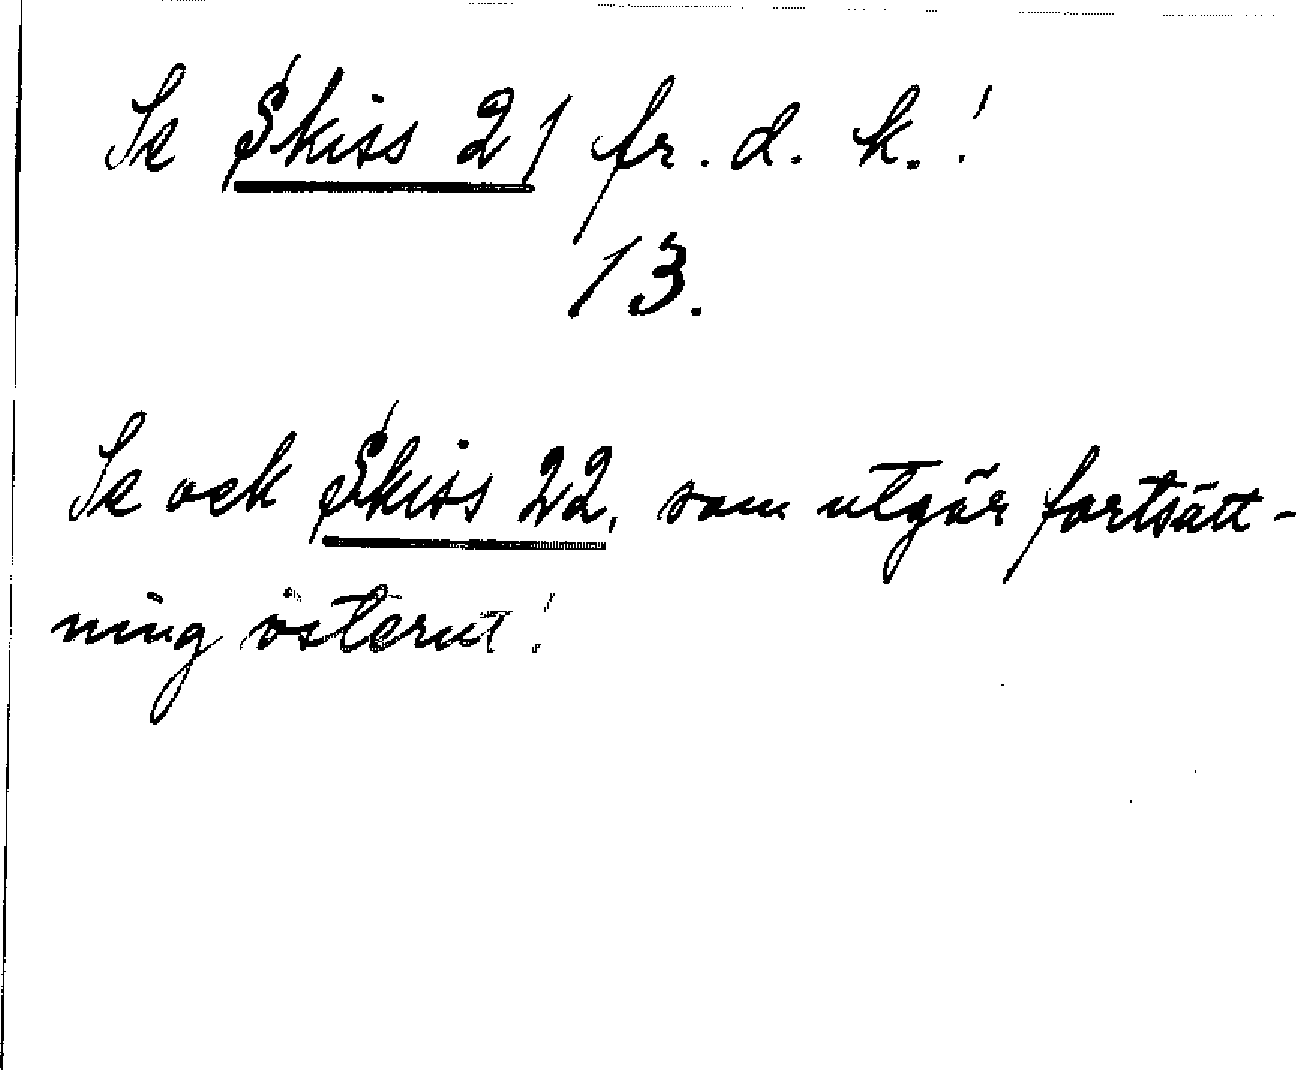 Se Skiss 21 fr. d. k.!
13.
Se ock Skiss 22, som utgör fortsätt-
ning österut!